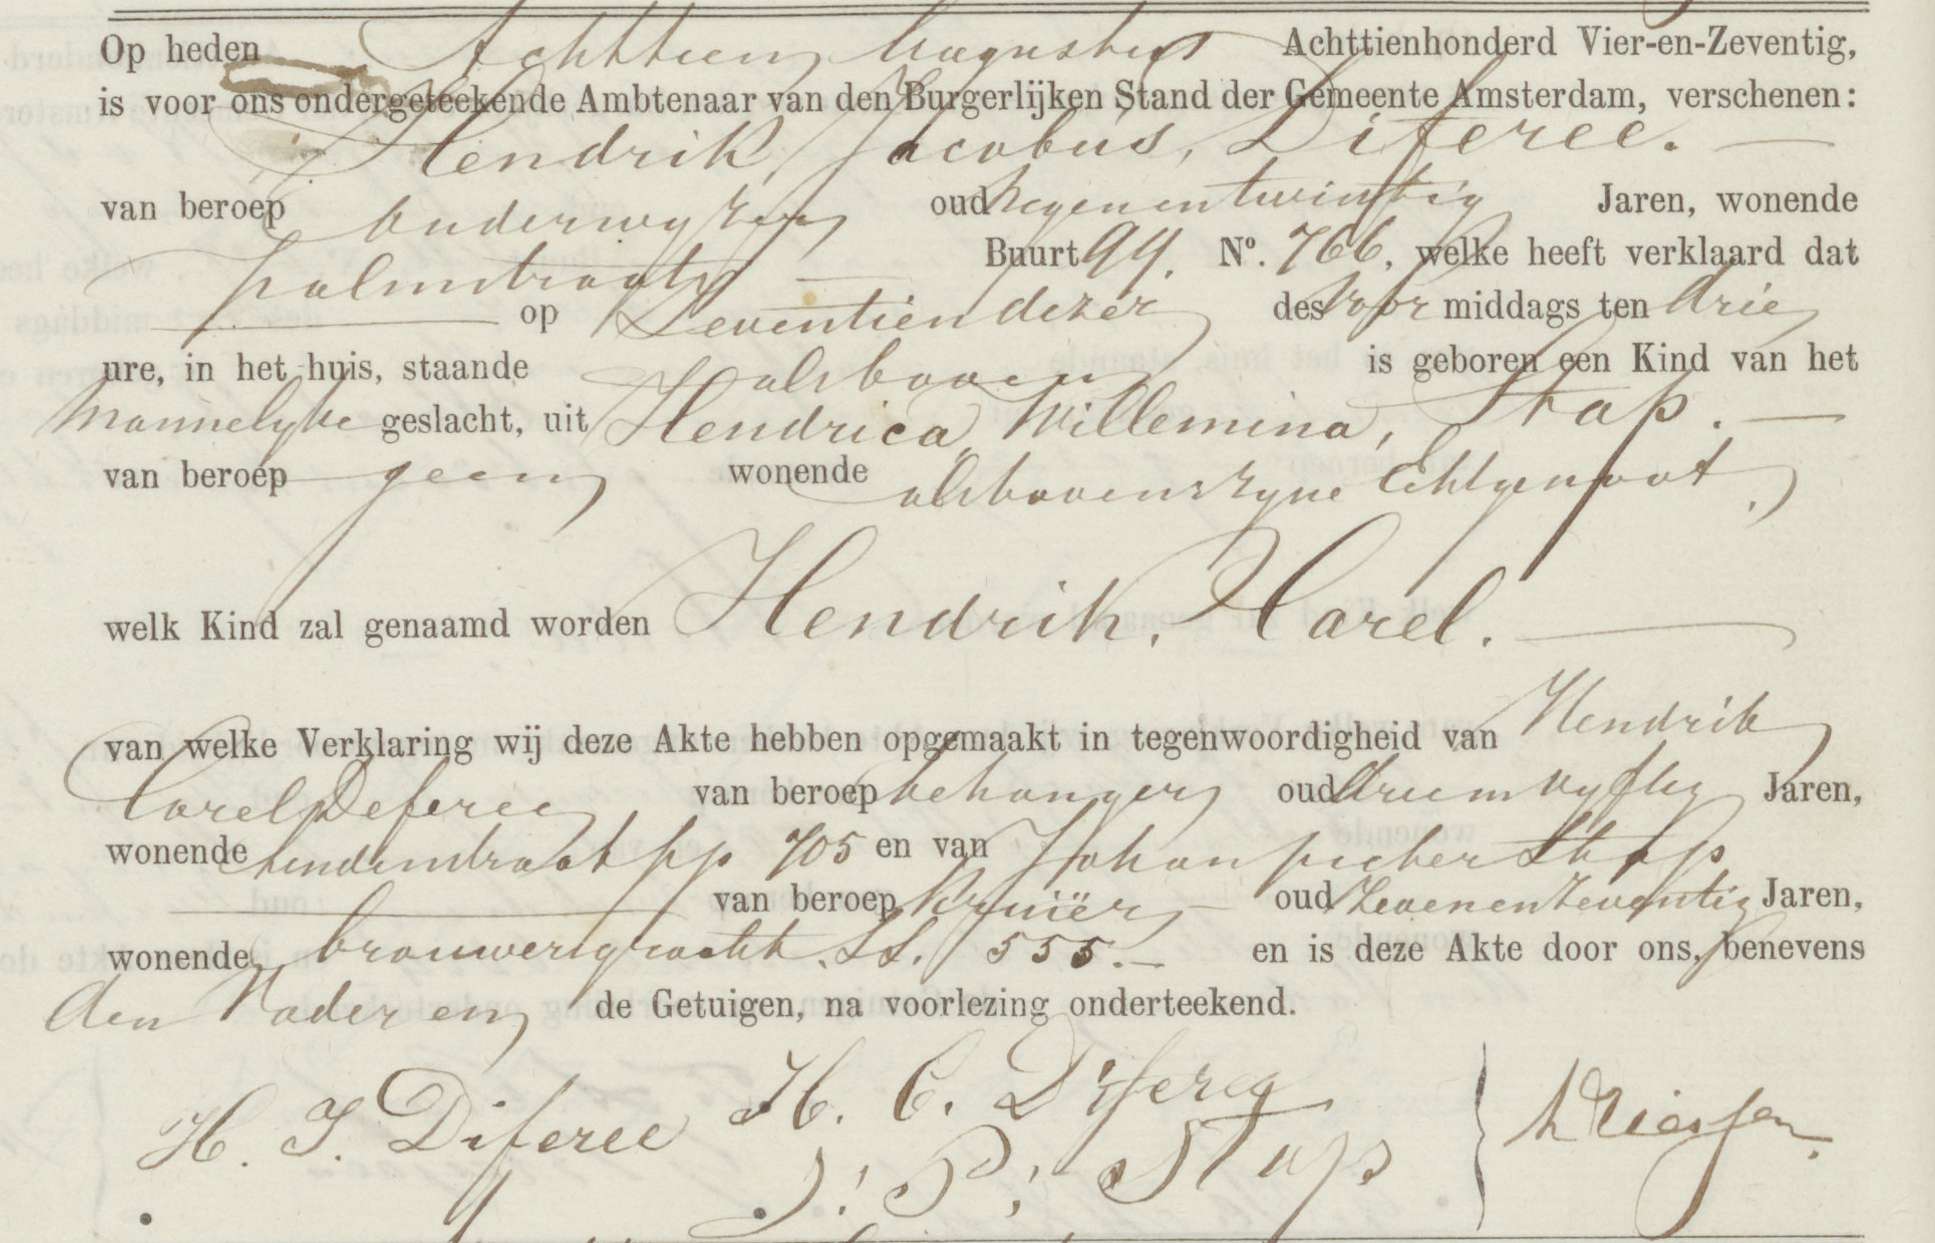 Op heden Achttien Augustus Achttienhonderd Vier-en-Zeventig,
is voor ons ondergeteekende Ambtenaar van den Burgerlijken Stand der Gemeente Amsterdam, verschenen:
Hendrik, Jacobus, Diferee. —
van beroep onderwyzer oud negenentwintig Jaren, wonende
palmstraat — Buurt 99. Nº. 766, welke heeft verklaard dat
— op Zeventien dezer des voor middags ten drie
ure, in het huis, staande alsboven is geboren een Kind van het
Mannelyke geslacht, uit Hendrica, Willemina, Stap. —
van beroep geen wonende alsboven zyne Echtgenoot.
welk Kind zal genaamd worden Hendrik. Carel. —
van welke Verklaring wij deze Akte hebben opgemaakt in tegenwoordigheid van Hendrik
Carel Deferee van beroep behanger oud drieenvyftig Jaren,
wonende lindenstraat pp 705 en van Johan pieter Stap
— van beroep Kruiër — oud zevenenzeventig Jaren,
wonende brouwersgracht. SS. 555. — en is deze Akte door ons, benevens
den Vader en de Getuigen, na voorlezing onderteekend.
H. J. Diferee H. C. Diferee
J. P. Stap